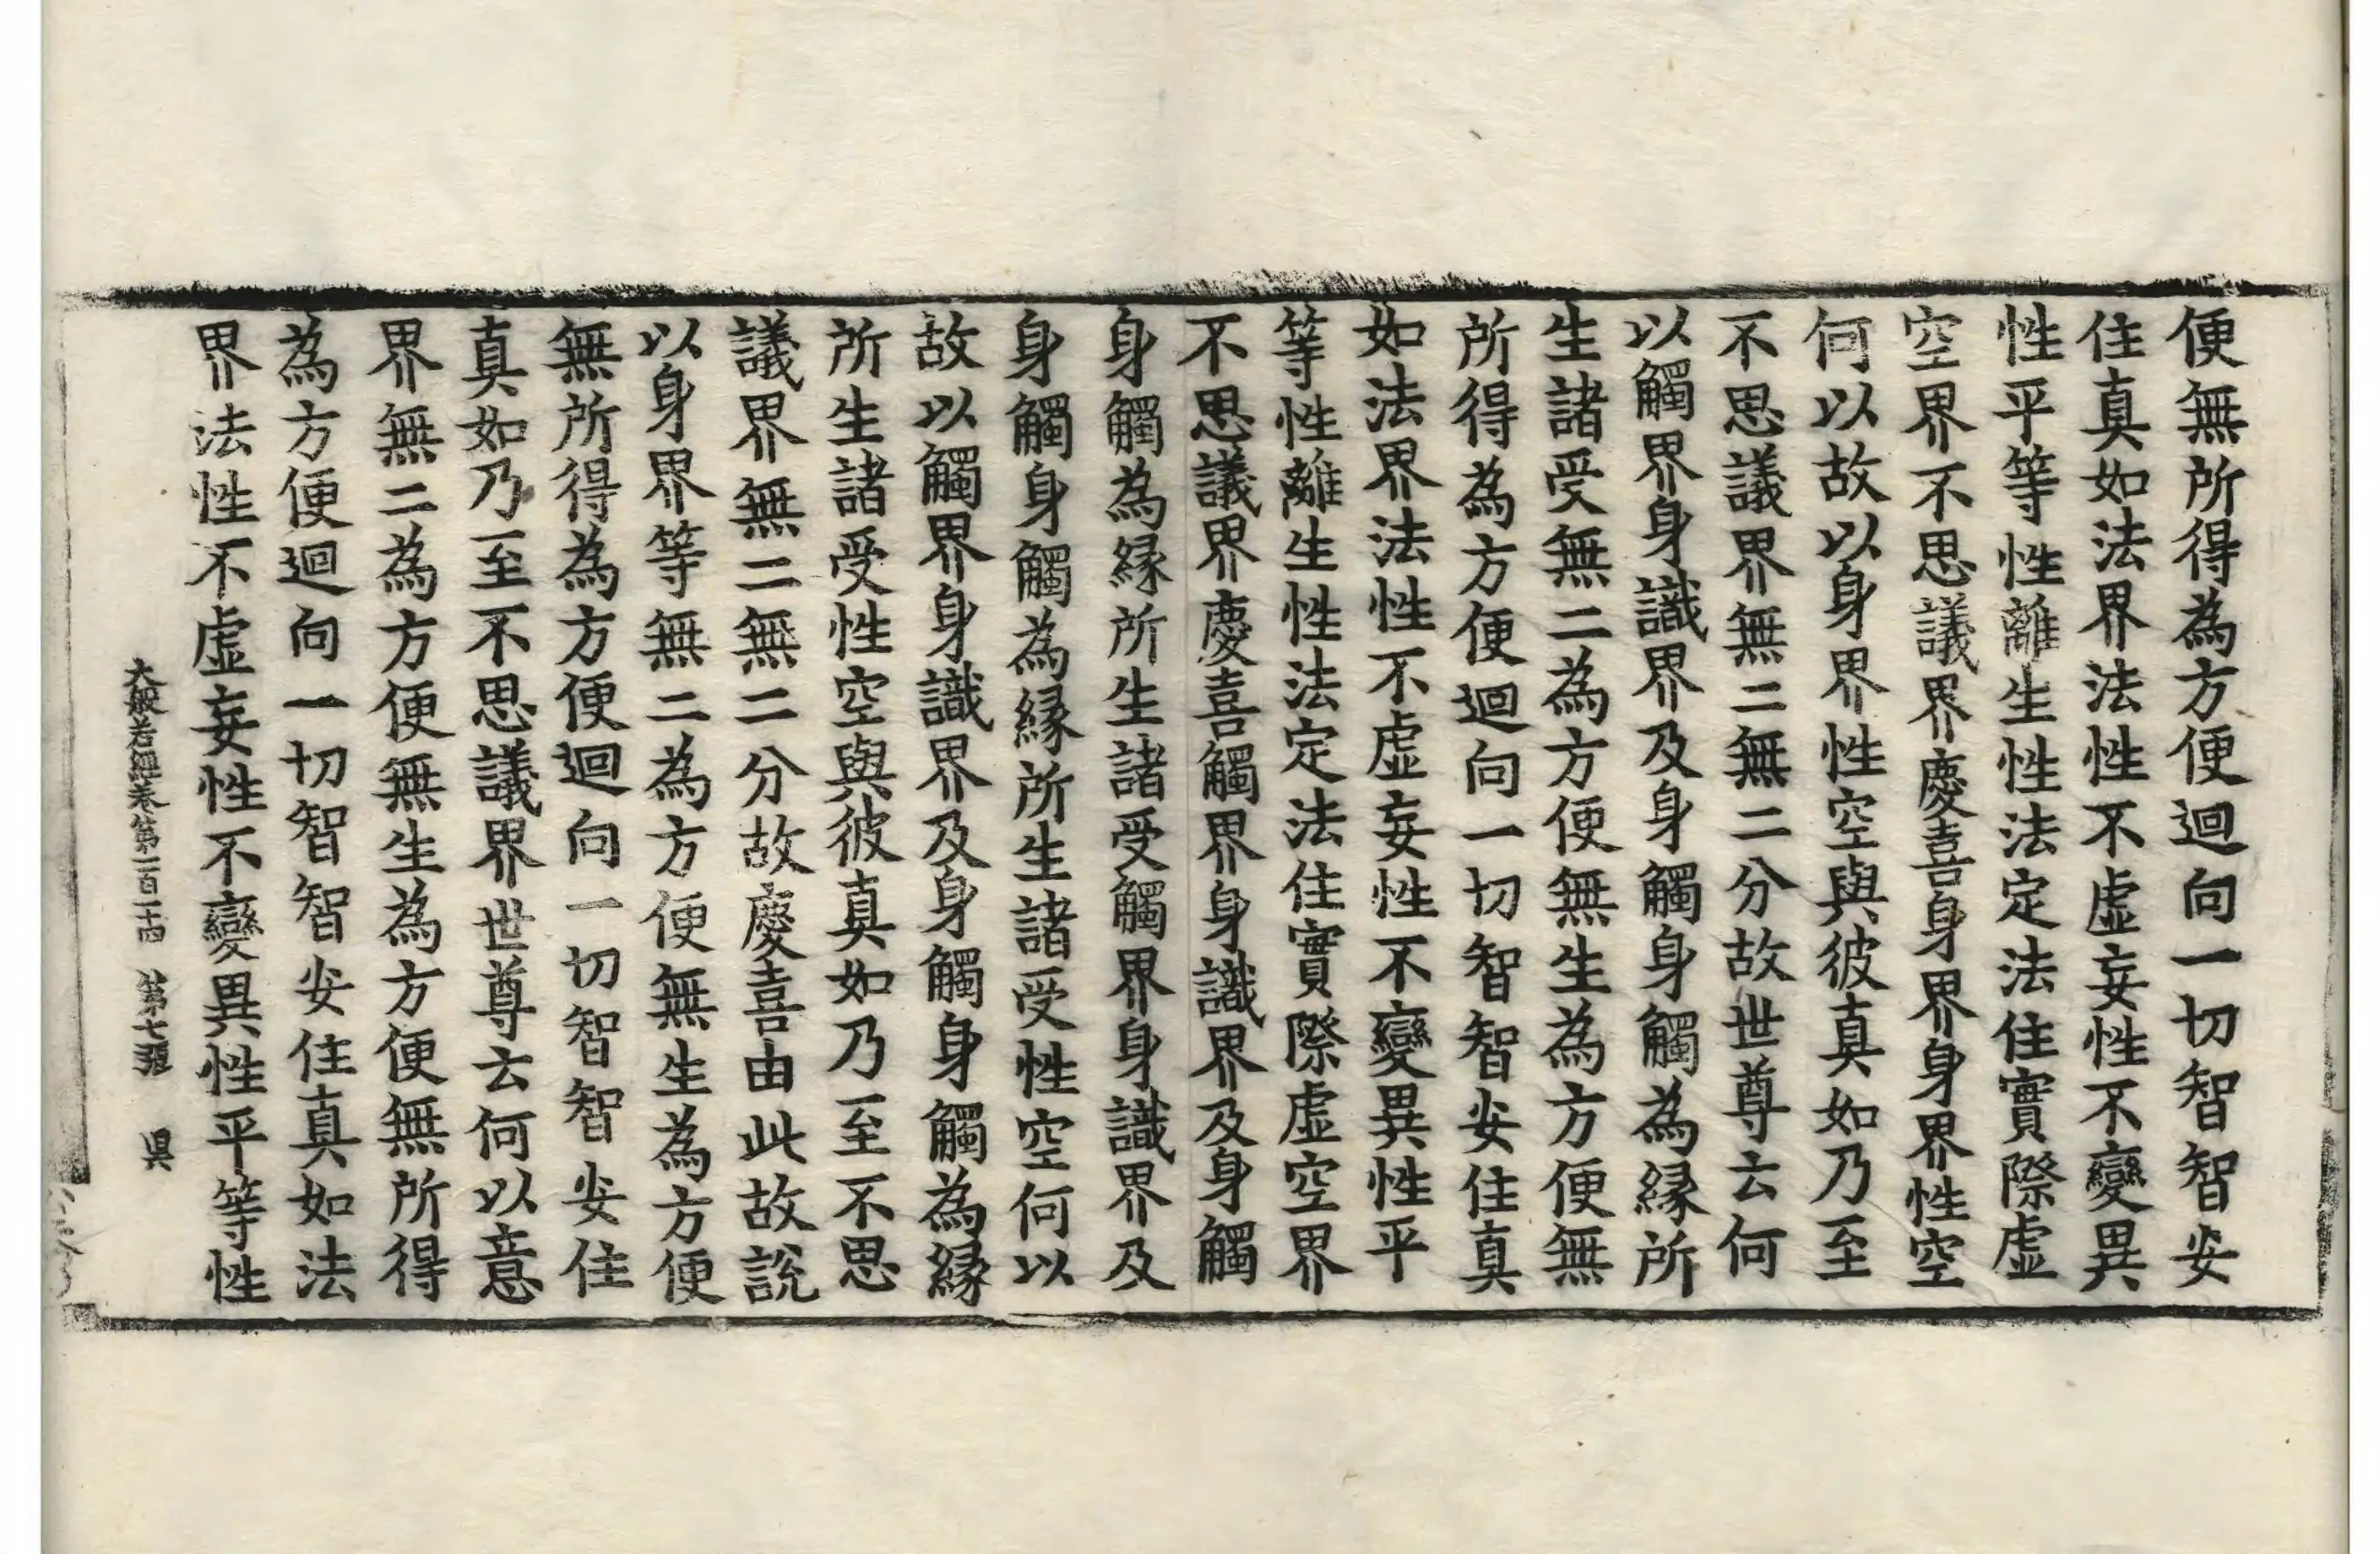 便無所得為方便迴向一切智智安
住真如法界法性不虛妄性不變異
性平等性離生性法定法住實際虛
空界不思議界慶喜身界身界性空
何以故以身界性空與彼真如乃至
不思議界無二無二分故世尊云何
以觸界身識界及身觸身觸為緣所
生諸受無二為方便無生為方便無
所得為方便迴向一切智智安住真
如法界法性不虛妄性不變異性平
等性離生性法定法住實際虛空界
不思議界慶喜觸界身識界及身觸
身觸為緣所生諸受觸界身識界及
身觸身觸為緣所生諸受性空何以
故以觸界身識界及身觸身觸為緣
所生諸受性空與彼真如乃至不思
議界無二無二分故慶喜由此故說
以身界等無二為方便無生為方便
無所得為方便迴向一切智智安住
真如乃至不思議界世尊云何以意
界無二為方便無生為方便無所得
為方便迴向一切智智安住真如法
界法性不虛妄性不變異性平等性
大般若經卷第一百一十四 第七張 昃